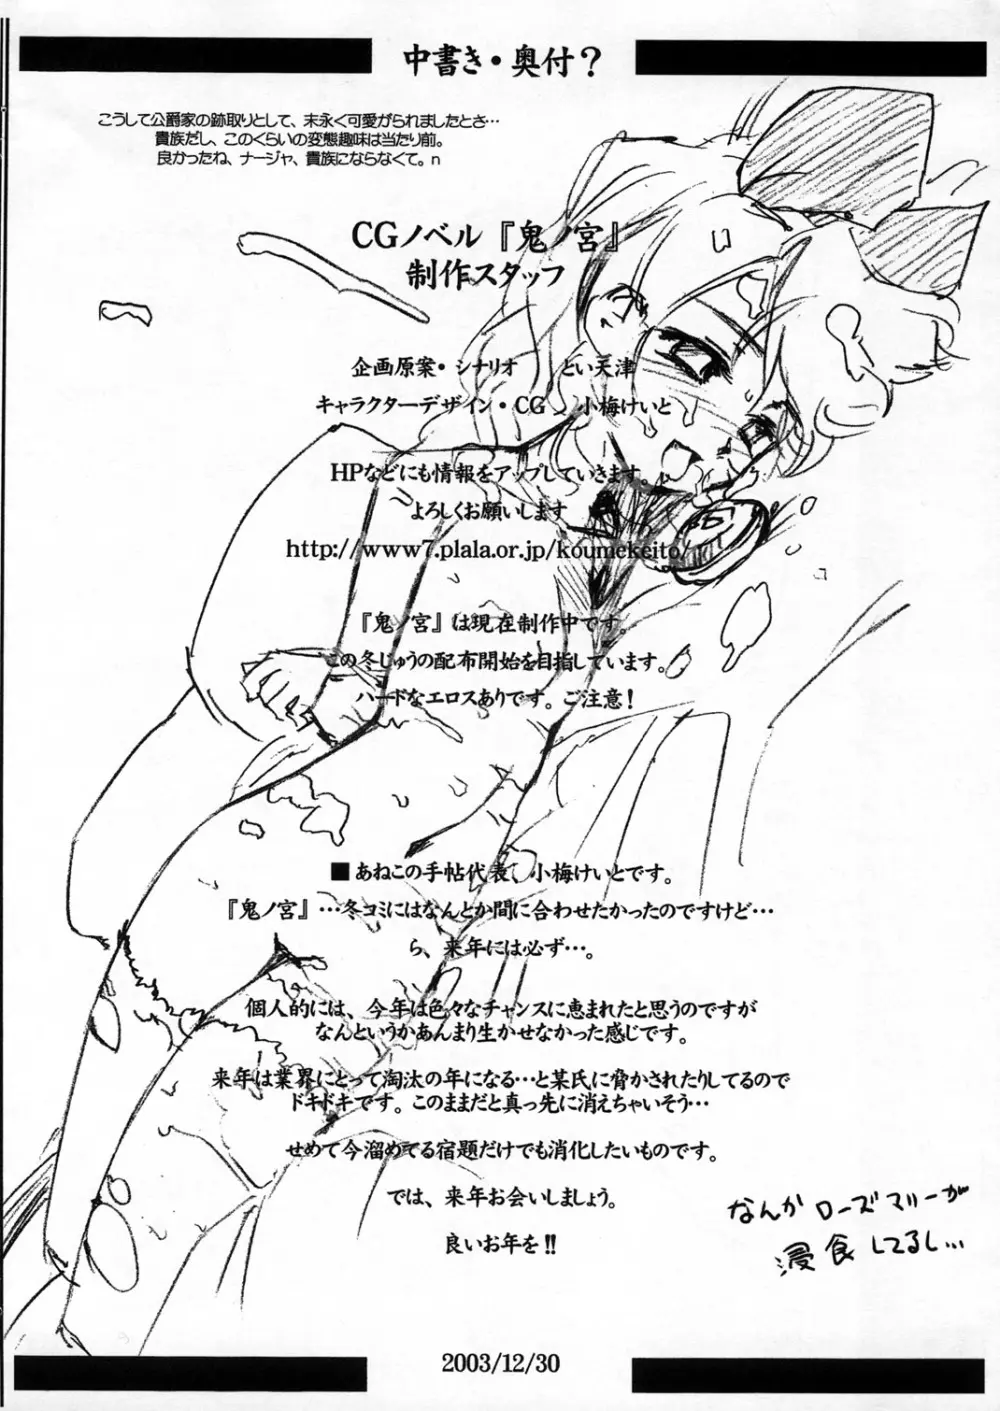 中書き・奥付？
こうして公爵家の跡取りとして、末永く可愛がられましたとさ…
貴族だし、このくらいの変態趣味は当たり前。
良かったね、ナージャ、貴族にならなくて。n
CGノベル『鬼ノ宮』
制作スタッフ
企画原案・シナリオ　とい天津
キャラクターデザイン・CG　小梅けいと
HPなどにも情報をアップしていきます。
よろしくお願いします
http://www7.plala.or.jp/koumekeito/
『鬼ノ宮』は現在制作中です。
この冬じゅうの配布開始を目指しています。
ハードなエロスありです。ご注意！
■あねこの手帖代表、小梅けいとです。
『鬼ノ宮』…冬コミにはなんとか間に合わせたかったのですけど…
ら、来年には必ず…。
個人的には、今年は色々なチャンスに恵まれたと思うのですが
なんというかあんまり生かせなかった感じです。
来年は業界にとって淘汰の年になる…と某氏に脅かされたりしてるので
ドキドキです。このままだと真っ先に消えちゃいそう…
せめて今溜めてる宿題だけでも消化したいものです。
では、来年お会いしましょう。
良いお年を!!
なんか ローズマリーが
浸食してるし…
2003/12/30